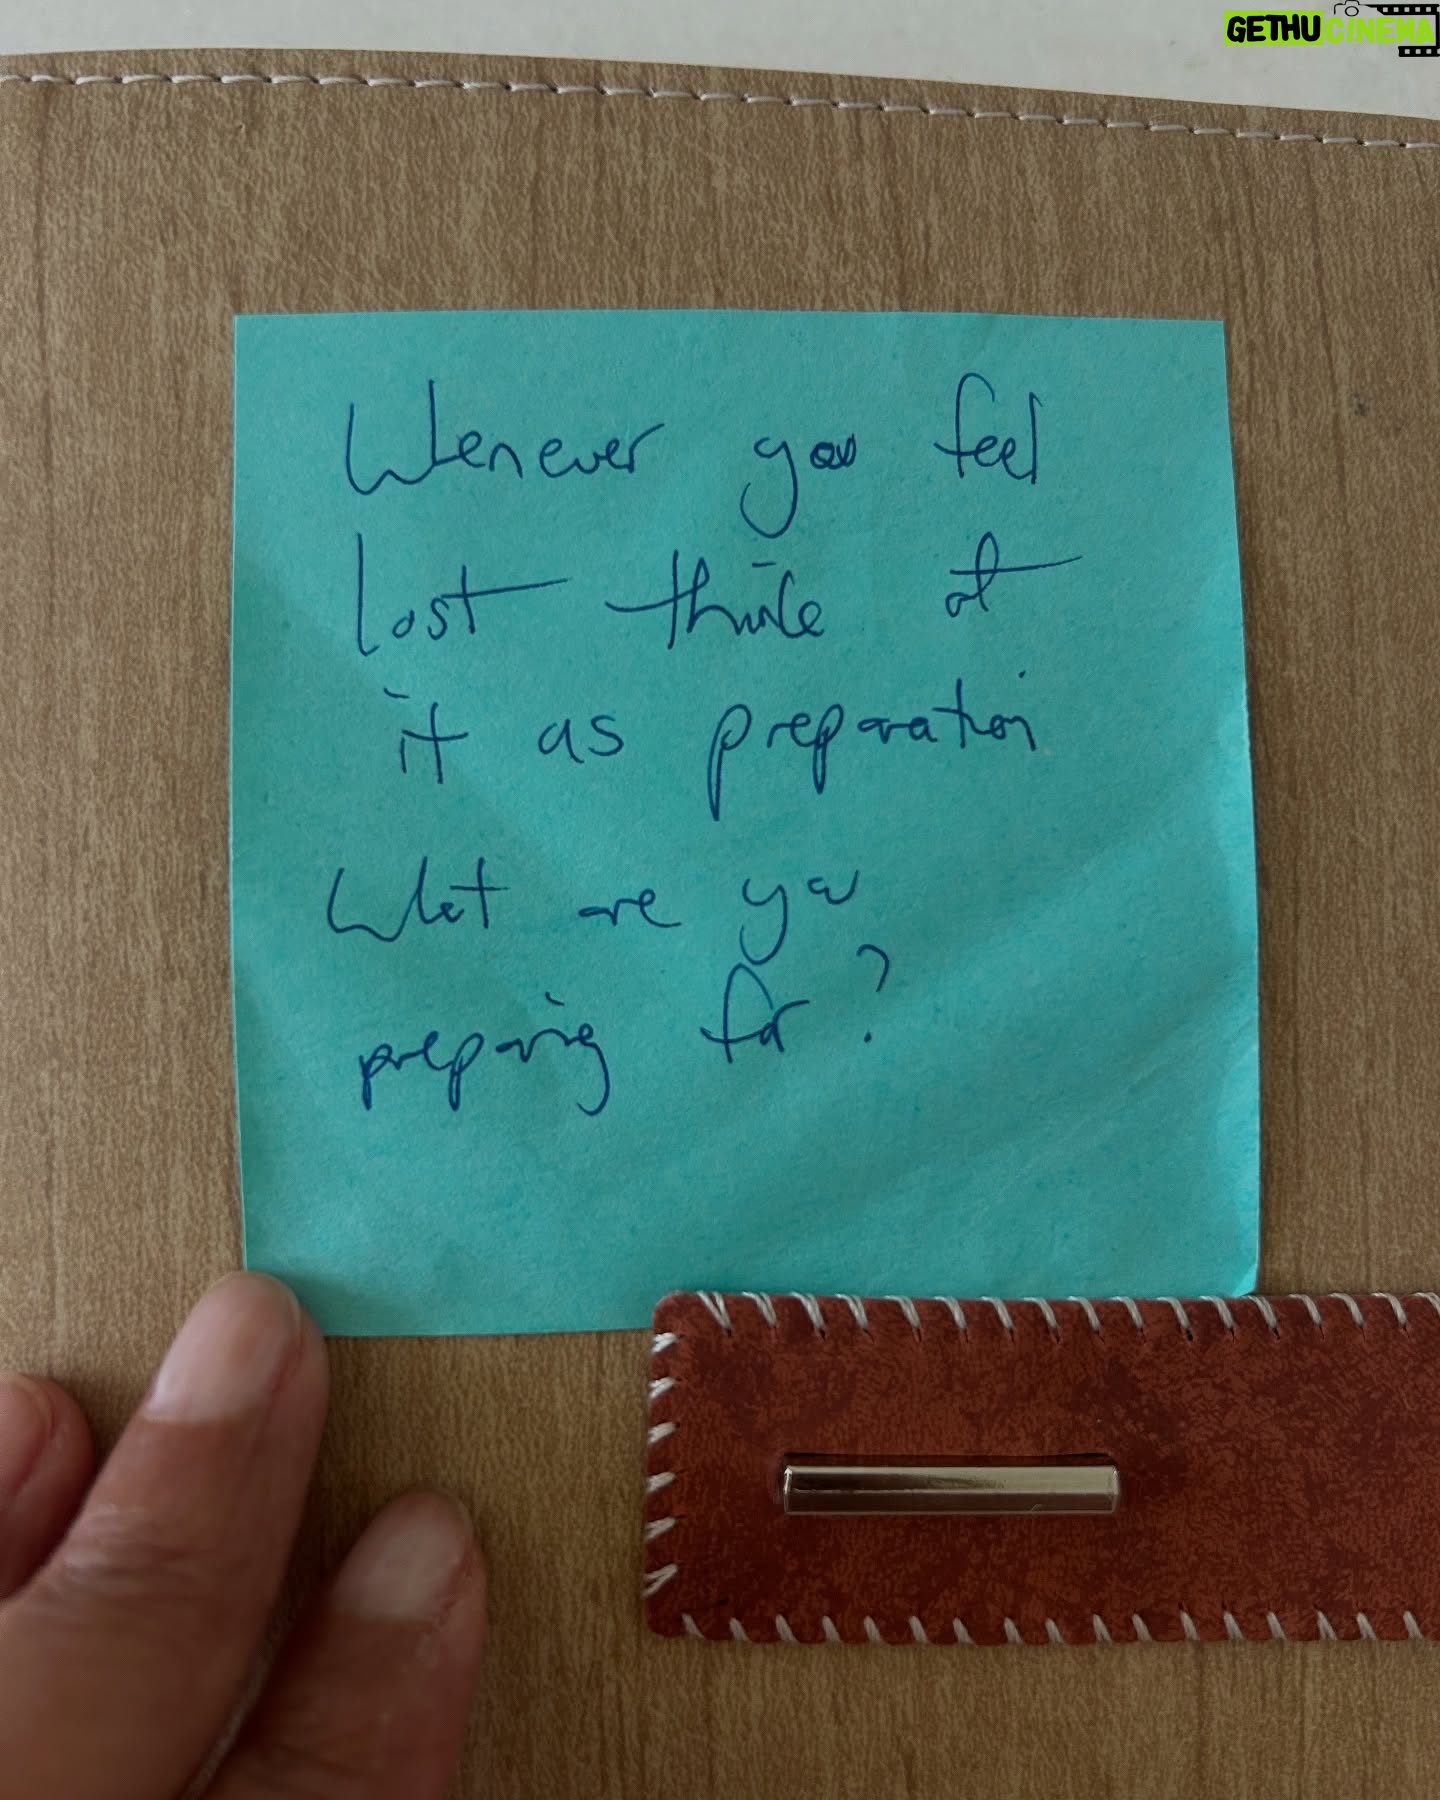 GETHUCINEMA
Whenever you feel
lost think at
it as preparation
What are you
preparing for?